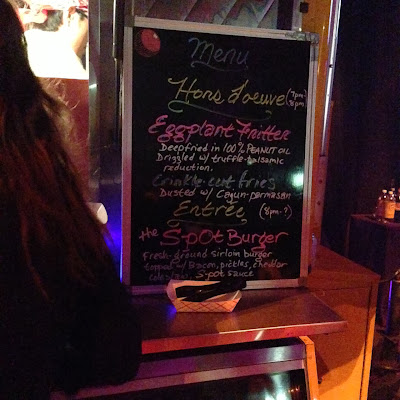 Menu
Hors d'oeuvre (7pm-
8pm)
Eggplant Fritter
Deepfried in 100% PEANUT OIL
Drizzled w/ truffle-balsamic
reduction.
Crinkle-cut fries
Dusted w/ Cajun-parmasan
Entrée (8pm-?)
the S-pot Burger
Fresh-ground sirloin burger
topped w/ Bacon, pickles, cheddar
coleslaw, S-pot sauce